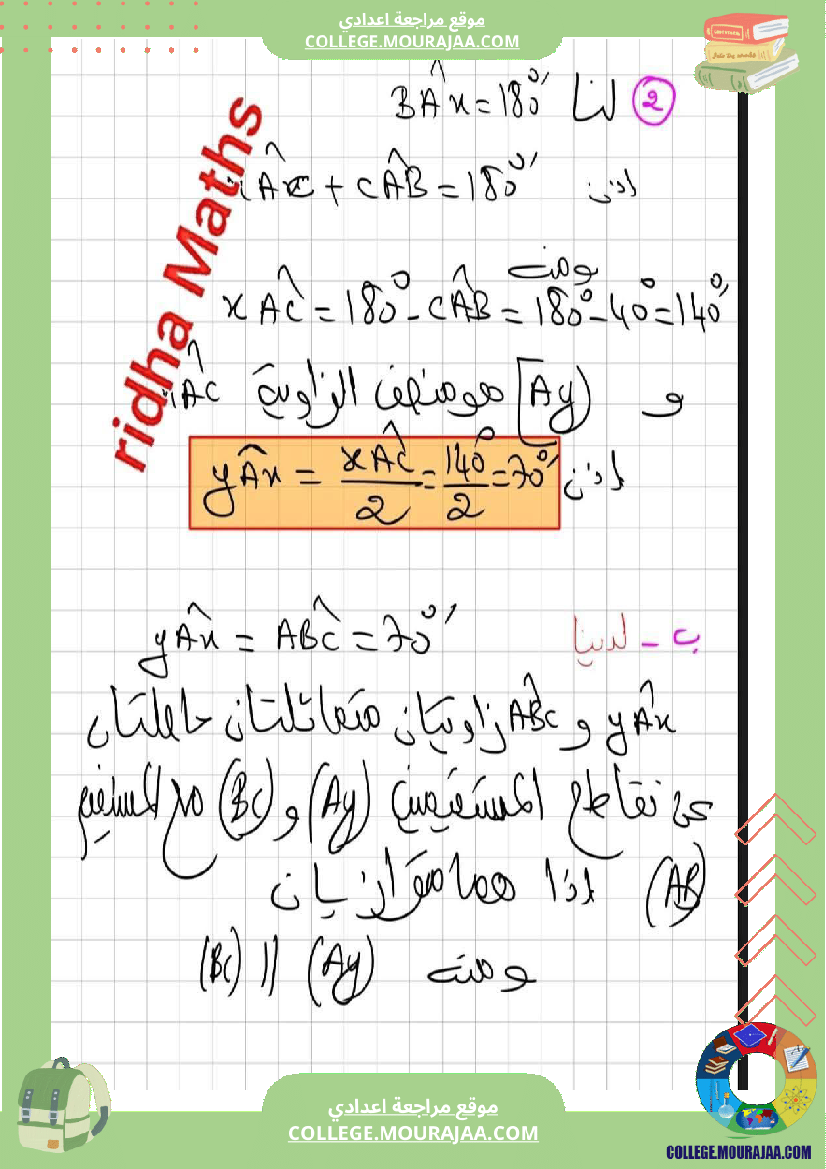 موقع مراجعة اعدادي
COLLEGE.MOURAJAA.COM
ridha Maths
② لنا BÂx = 180°
اذن xÂC + CÂB = 180°
ومنه
xÂC = 180° - CÂB = 180° - 40° = 140°
و [Ay) هو منصف الزاوية xÂC
اذن yÂx = xÂC/2 = 140°/2 = 70°
ب - لدينا yÂx = AB̂C = 70°
yÂx و AB̂C زاويتان متماثلتان حاصلتان
عن تقاطع المستقيمين (Ay) و (BC) مع المستقيم
(AB) اذا هما متوازيان
ومنه (Ay) // (BC)
موقع مراجعة اعدادي
COLLEGE.MOURAJAA.COM
COLLEGE.MOURAJAA.COM